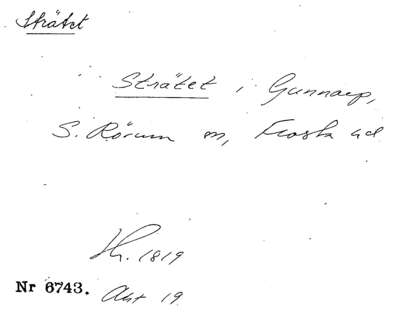 Strätet
Strätet i Gunnarp,
S. Rörum sn, Frosta hd
Hr. 1819
Nr 6743. Akt 19